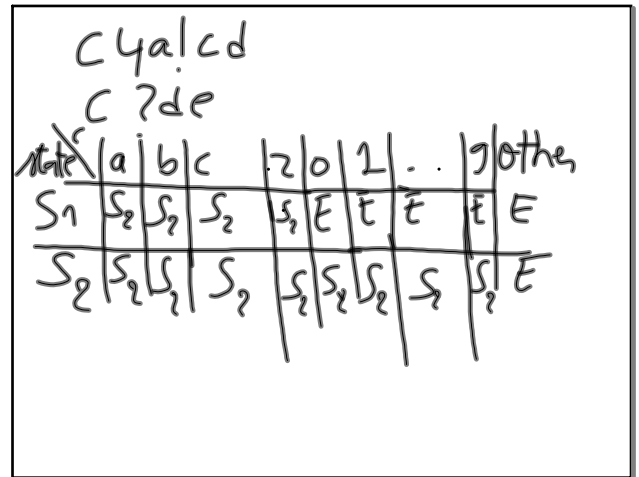 C 4a!cd
C ?de
state c a b c . z 0 1 . . 9 other
S1 S2 S2 S2 S2 E E E E E
S2 S2 S2 S2 S2 S2 S2 S2 S2 E